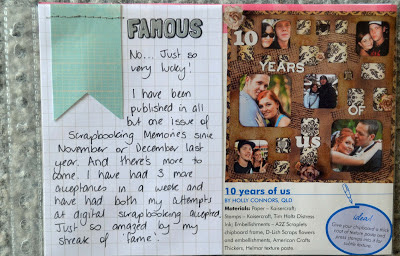 FAMOUS
No... Just so
very lucky!
I have been
published in all
but one issue of
Scrapbooking Memories since
November or December last
year. And there's more to
come. I have had 3 more
acceptances in a week and
have had both my attempts
at digital scrapbooking accepted.
Just so amazed by my
streak of 'fame'.
10
YEARS
OF
us
10 years of us
BY HOLLY CONNORS, QLD
Materials: Paper – Kaisercraft;
Stamps – Kaisercraft, Tim Holtz Distress
Ink; Embellishments – A2Z Scraplets
clipboard frame, D-Lish Scraps flowers
and embellishments, American Crafts
Thickers, Helmar texture paste.
idea!
Give your chipboard a thick
coat of texture paste and
press stamps into it for
subtle texture.